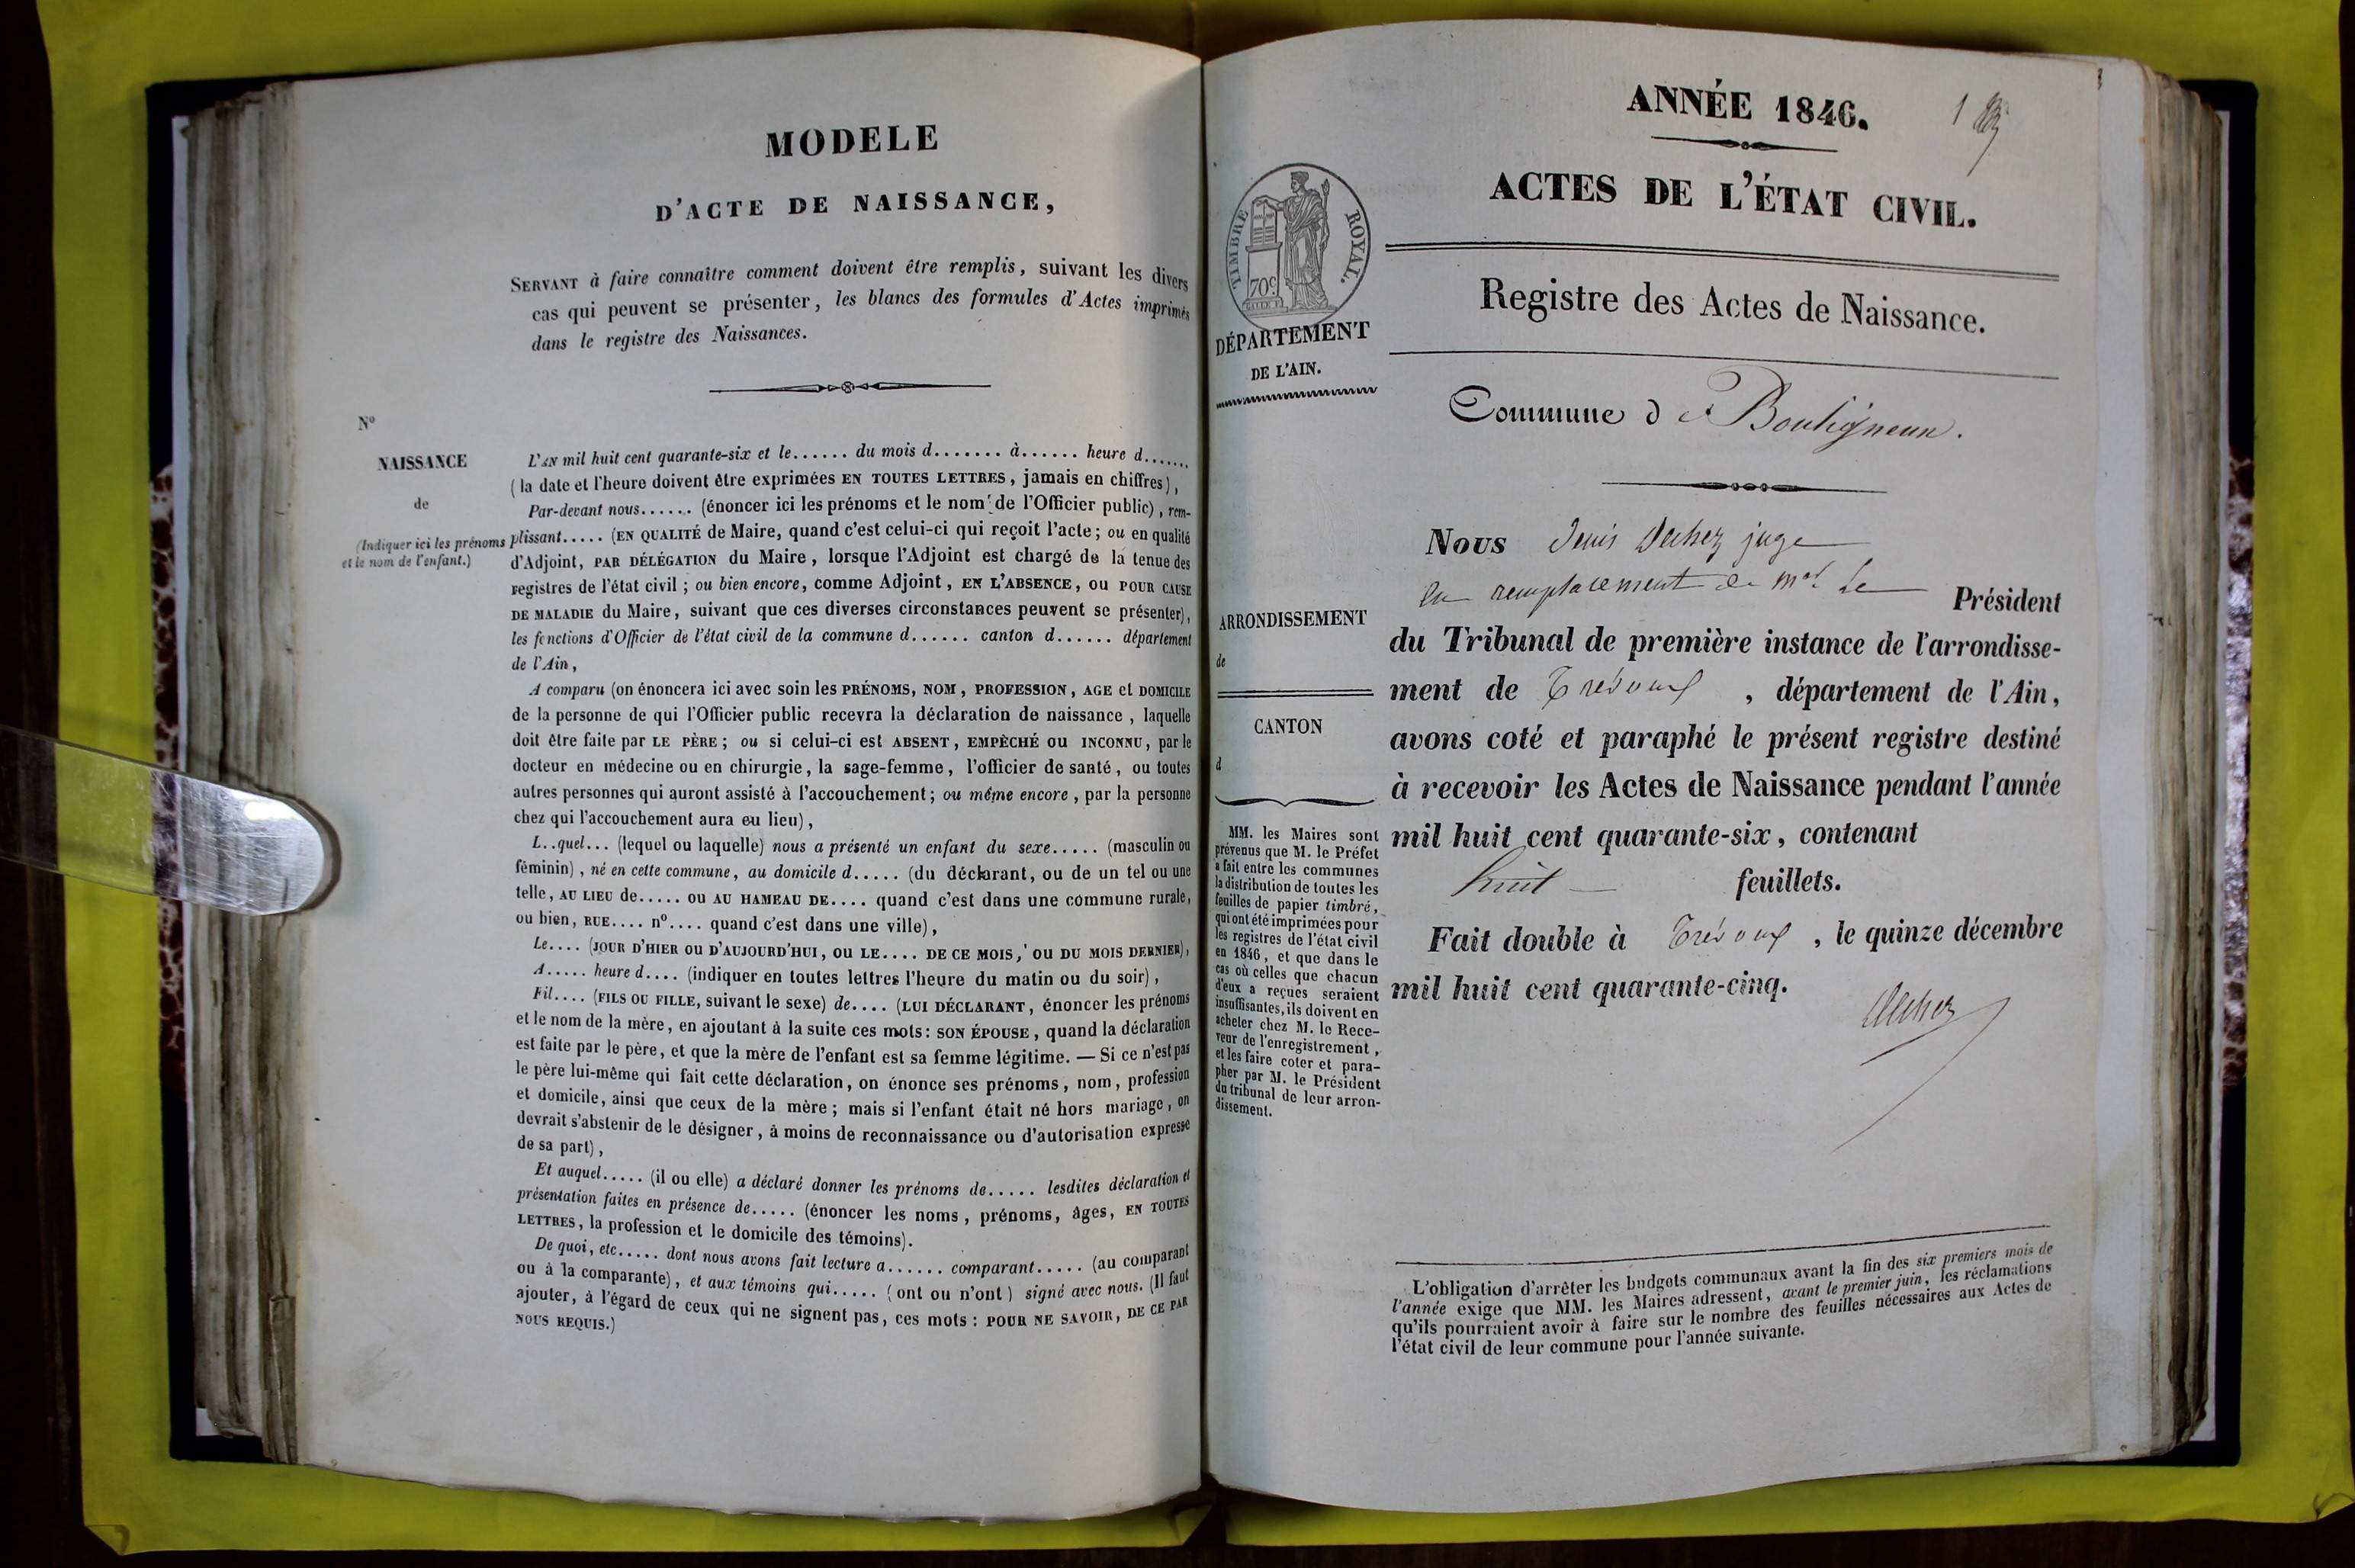 MODELE
D'ACTE DE NAISSANCE,
SERVANT à faire connaître comment doivent être remplis, suivant les divers
cas qui peuvent se présenter, les blancs des formules d'Actes imprimés
dans le registre des Naissances.
N°
NAISSANCE
de
(Indiquer ici les prénoms
et le nom de l'enfant.)
L'AN mil huit cent quarante-six et le...... du mois d....... à...... heure d.......
(la date et l'heure doivent être exprimées EN TOUTES LETTRES, jamais en chiffres),
Par-devant nous...... (énoncer ici les prénoms et le nom de l'Officier public), rem-
plissant..... (EN QUALITÉ de Maire, quand c'est celui-ci qui reçoit l'acte; ou en qualité
d'Adjoint, PAR DÉLÉGATION du Maire, lorsque l'Adjoint est chargé de la tenue des
registres de l'état civil; ou bien encore, comme Adjoint, EN L'ABSENCE, OU POUR CAUSE
DE MALADIE du Maire, suivant que ces diverses circonstances peuvent se présenter),
les fonctions d'Officier de l'état civil de la commune d...... canton d...... département
de l'Ain,
A comparu (on énoncera ici avec soin les PRÉNOMS, NOM, PROFESSION, AGE et DOMICILE
de la personne de qui l'Officier public recevra la déclaration de naissance, laquelle
doit être faite par LE PÈRE; ou si celui-ci est ABSENT, EMPÊCHÉ OU INCONNU, par le
docteur en médecine ou en chirurgie, la sage-femme, l'officier de santé, ou toutes
autres personnes qui auront assisté à l'accouchement; ou même encore, par la personne
chez qui l'accouchement aura eu lieu),
L..quel... (lequel ou laquelle) nous a présenté un enfant du sexe..... (masculin ou
féminin), né en cette commune, au domicile d..... (du déclarant, ou de un tel ou une
telle, AU LIEU de..... ou AU HAMEAU DE.... quand c'est dans une commune rurale,
ou bien, RUE.... n°.... quand c'est dans une ville),
Le.... (JOUR D'HIER OU D'AUJOURD'HUI, OU LE.... DE CE MOIS, OU DU MOIS DERNIER),
A..... heure d.... (indiquer en toutes lettres l'heure du matin ou du soir),
Fil.... (FILS OU FILLE, suivant le sexe) de.... (LUI DÉCLARANT, énoncer les prénoms
et le nom de la mère, en ajoutant à la suite ces mots: SON ÉPOUSE, quand la déclaration
est faite par le père, et que la mère de l'enfant est sa femme légitime. — Si ce n'est pas
le père lui-même qui fait cette déclaration, on énonce ses prénoms, nom, profession
et domicile, ainsi que ceux de la mère; mais si l'enfant était né hors mariage, on
devrait s'abstenir de le désigner, à moins de reconnaissance ou d'autorisation expresse
de sa part),
Et auquel..... (il ou elle) a déclaré donner les prénoms de..... lesdites déclaration et
présentation faites en présence de..... (énoncer les noms, prénoms, âges, EN TOUTES
LETTRES, la profession et le domicile des témoins).
De quoi, etc..... dont nous avons fait lecture a...... comparant..... (au comparant
ou à la comparante), et aux témoins qui..... (ont ou n'ont) signé avec nous. (Il faut
ajouter, à l'égard de ceux qui ne signent pas, ces mots: POUR NE SAVOIR, DE CE PAR
NOUS REQUIS.)
ANNÉE 1846.
1
ACTES DE L'ÉTAT CIVIL.
TIMBRE ROYAL.
70c
DÉPARTEMENT
DE L'AIN.
Registre des Actes de Naissance.
Commune de Bouligneux.
ARRONDISSEMENT
de
CANTON
d
MM. les Maires sont
prévenus que M. le Préfet
a fait entre les communes
la distribution de toutes les
feuilles de papier timbré,
qui ont été imprimées pour
les registres de l'état civil
en 1846, et que dans le
cas où celles que chacun
d'eux a reçues seraient
insuffisantes, ils doivent en
acheter chez M. le Rece-
veur de l'enregistrement,
et les faire coter et para-
pher par M. le Président
du tribunal de leur arron-
dissement.
Nous Denis Dechez juge
en remplacement de Mr. le Président
du Tribunal de première instance de l'arrondisse-
ment de Trévoux, département de l'Ain,
avons coté et paraphé le présent registre destiné
à recevoir les Actes de Naissance pendant l'année
mil huit cent quarante-six, contenant
huit feuillets.
Fait double à Trévoux, le quinze décembre
mil huit cent quarante-cinq.
Dechez
L'obligation d'arrêter les budgets communaux avant la fin des six premiers mois de
l'année exige que MM. les Maires adressent, avant le premier juin, les réclamations
qu'ils pourraient avoir à faire sur le nombre des feuilles nécessaires aux Actes de
l'état civil de leur commune pour l'année suivante.